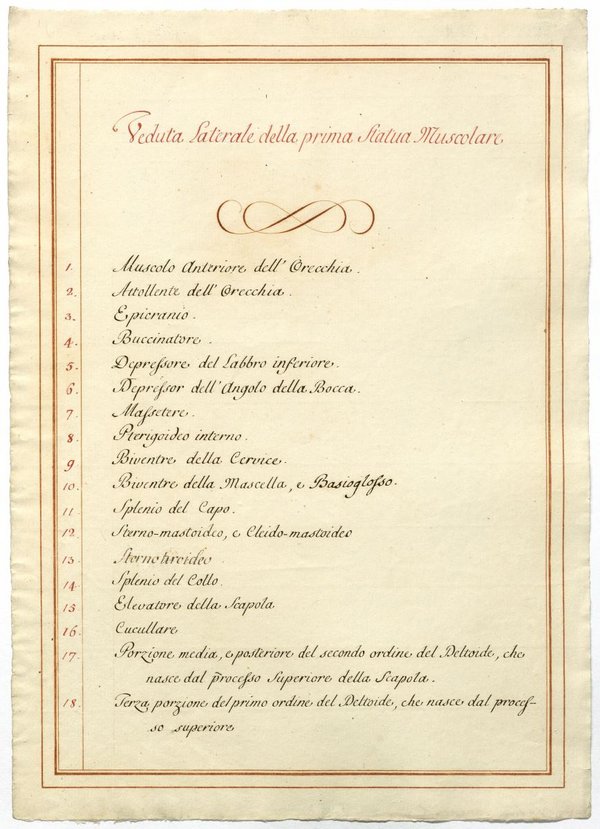 Veduta Laterale della prima Statua Muscolare
1. Muscolo Anteriore dell' Orecchia.
2. Attollente dell' Orecchia.
3. Epicranio.
4. Buccinatore.
5. Depressore del Labbro inferiore.
6. Depressor dell' Angolo della Bocca.
7. Massetere.
8. Pterigoideo interno.
9 Biventre della Cervice.
10. Biventre della Mascella, e Basioglosso.
11. Splenio del Capo.
12. Sterno-mastoideo, e Cleido-mastoideo
13. Sternotiroideo
14. Splenio del Collo.
15 Elevatore della Scapola
16. Cucullare
17. Porzione media, e posteriore del secondo ordine del Deltoide, che
nasce dal processo Superiore della Scapola.
18. Terza porzione del primo ordine del Deltoide, che nasce dal proces-
so superiore